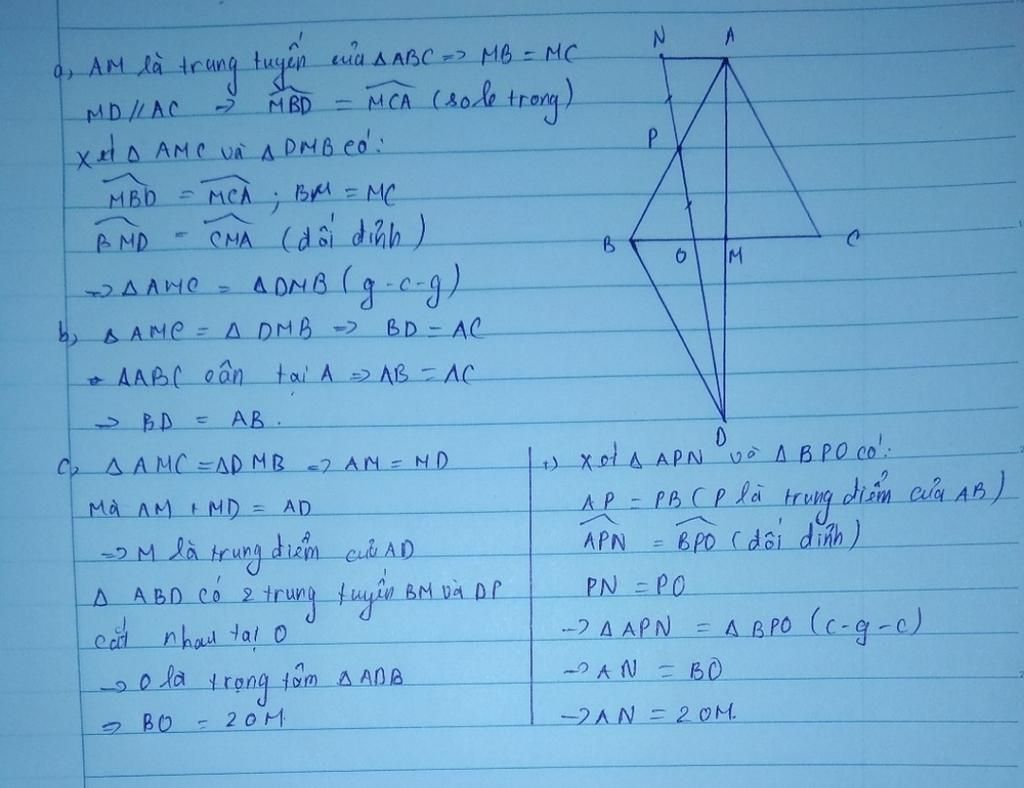 a, AM là trung tuyến của ΔABC => MB = MC
MD // AC -> MBD = MCA (so le trong)
Xét Δ AMC và Δ DMB có:
MBD = MCA ; BM = MC
BMD = CMA (đối đỉnh)
=> Δ AMC = Δ DMB (g-c-g)
b, Δ AMC = Δ DMB => BD = AC
ΔABC cân tại A => AB = AC
-> BD = AB.
c, Δ AMC = ΔDMB => AM = MD
Mà AM + MD = AD
=> M là trung điểm của AD
Δ ABD có 2 trung tuyến BM và DP
cắt nhau tại O
-> O là trọng tâm Δ ADB
=> BO = 2 OM.
+) Xét Δ APN và Δ BPO có:
AP = PB (P là trung điểm của AB)
APN = BPO (đối đỉnh)
PN = PO
-> Δ APN = Δ BPO (c-g-c)
-> AN = BO
-> AN = 2 OM.
N A
P
B O M C
D